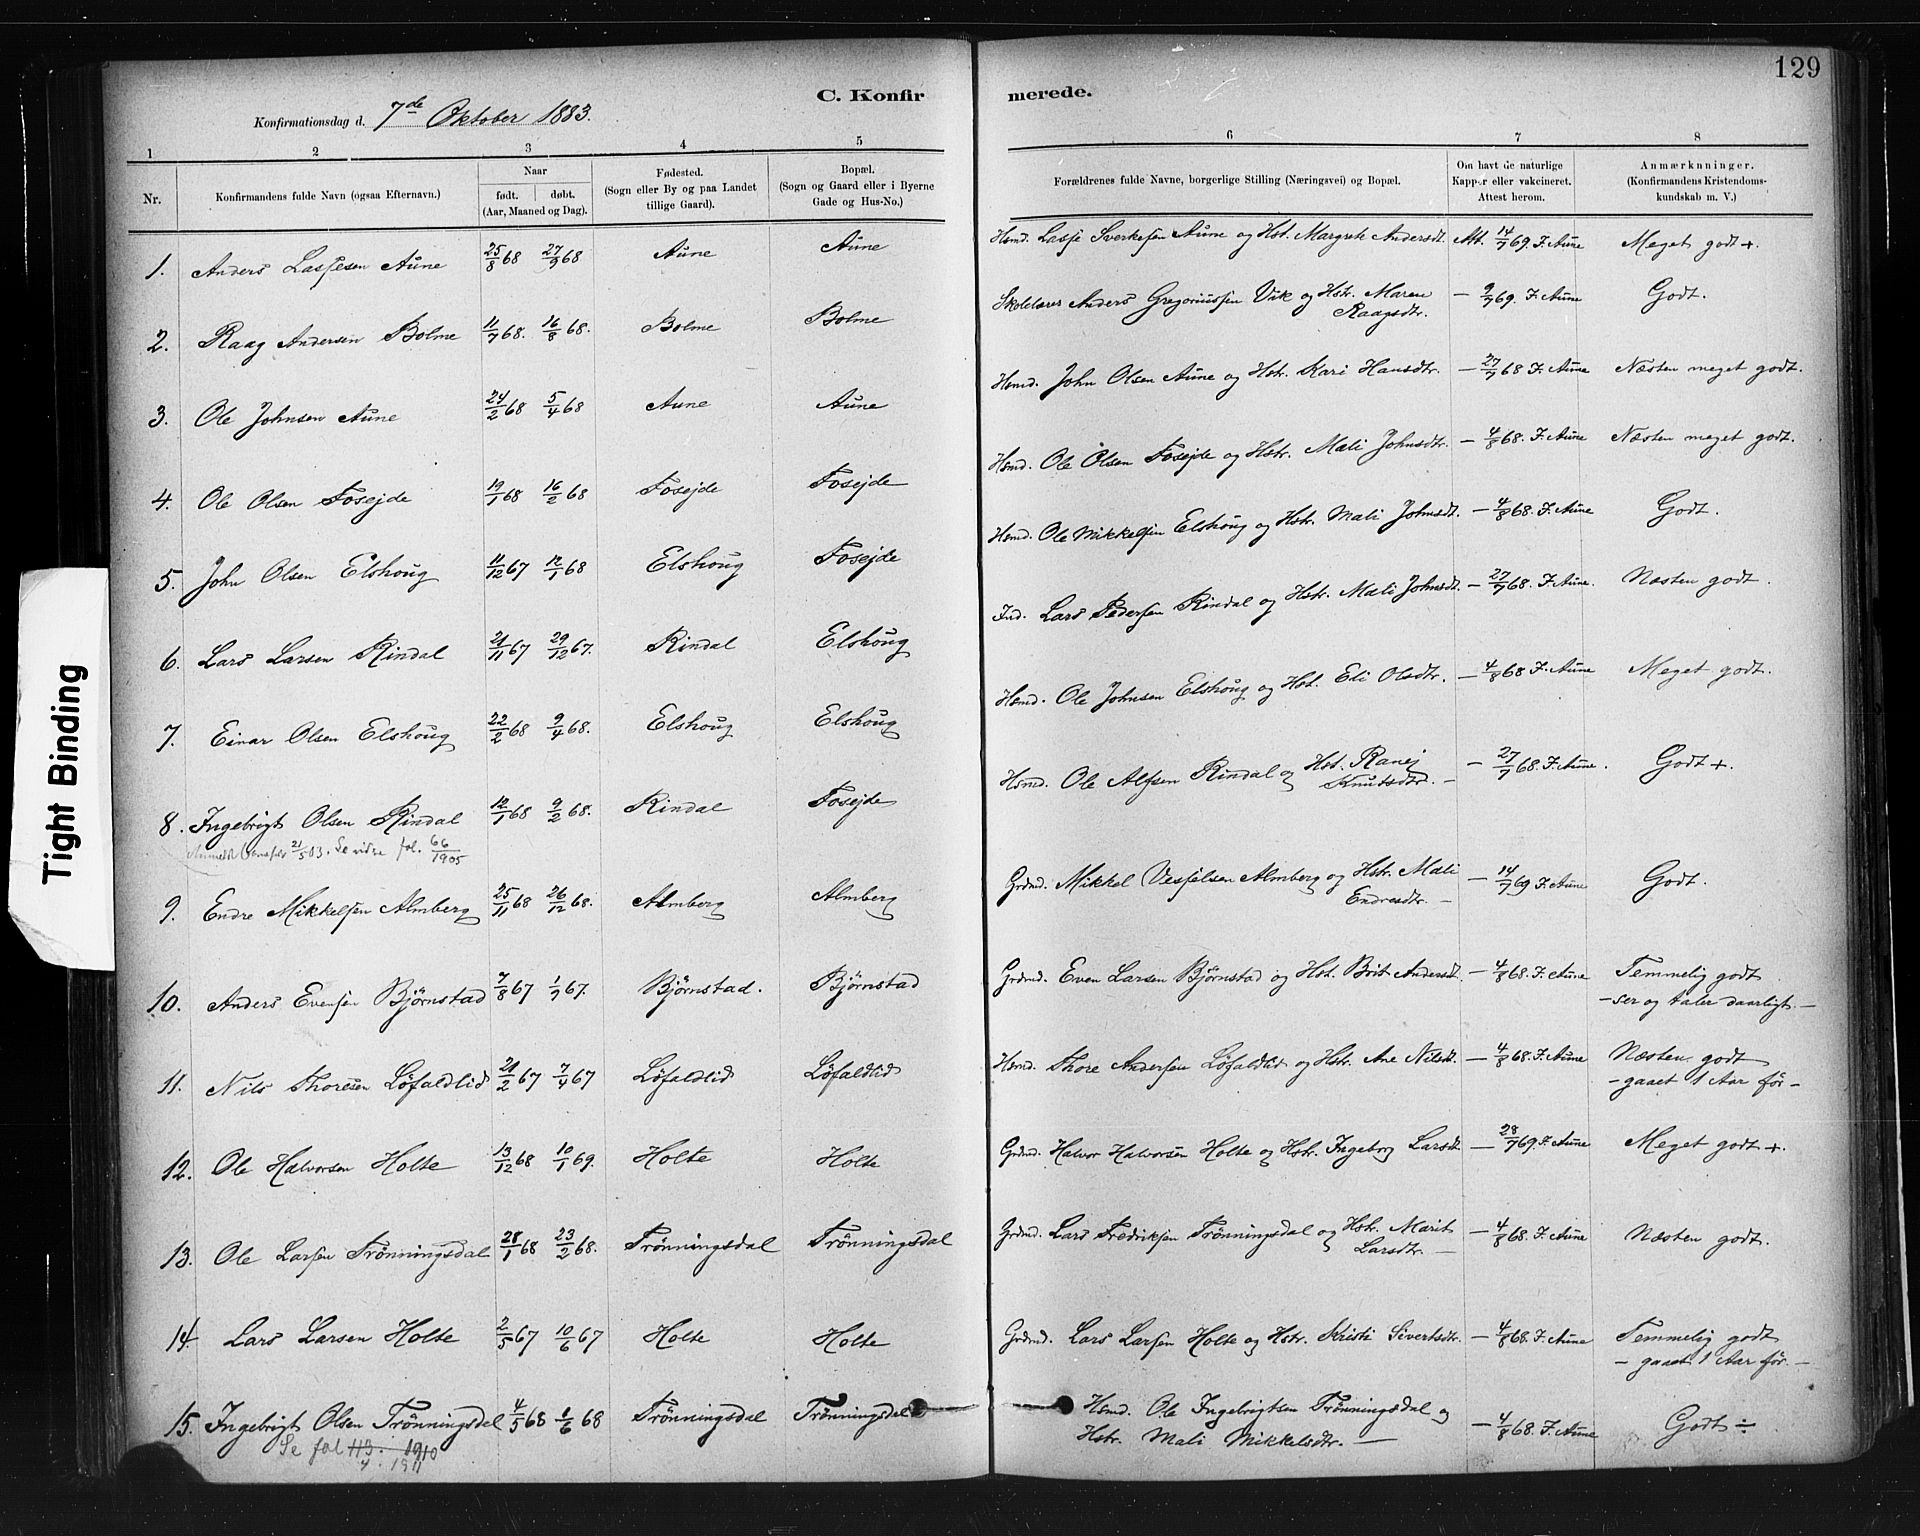 129
C. Konfirmerede.
Konfirmationsdag d. 7de Oktober 1883.
1 2 3 4 5 6 7 8
Nr. Konfirmandens fulde Navn (ogsaa Efternavn.) Naar født. døbt. (Aar, Maaned og Dag). Fødested. (Sogn eller By og paa Landet tillige Gaard). Bopæl. (Sogn og Gaard eller i Byerne Gade og Hus-No.) Forældrenes fulde Navne, borgerlige Stilling (Næringsvei) og Bopæl. Om havt de naturlige Kopper eller vakcineret. Attest herom. Anmærkninger. (Konfirmandens Kristendomskundskab m. V.)
1. Anders Lassesen Aune 25/8 68 27/9 68 Aune Aune Hsmd. Lasse Sverkesen Aune og Hst. Margrete Andersdt. Att. 14/7 69. F. Aune Meget godt +.
2. Raag Andersen Bolme 11/7 68. 16/8 68. Bolme Bolme Skolelærer Anders Gregoriussen Vik og Hstr. Maren Raagsdtr. — 9/7 69. F. Aune Godt.
3. Ole Johnsen Aune 24/2 68 5/4 68 Aune Aune Hsmd. John Olsen Aune og Hstr. Kari Hansdtr. — 27/7 68 F. Aune Næsten meget godt.
4. Ole Olsen Fosejde 19/1 68 16/2 68 Fosejde Fosejde Hsmd. Ole Olsen Fosejde og Hstr. Mali Johnsdtr. — 4/8 68. F. Aune Næsten meget godt.
5. John Olsen Elshoug 11/12 67 12/1 68 Elshoug Fosejde Hsmd. Ole Mikkelsen Elshoug og Hstr. Mali Johnsdt. — 4/8 68. F. Aune Godt.
6. Lars Larsen Rindal 21/11 67 29/12 67. Rindal Elshoug Ind. Lars Pedersen Rindal og Hstr. Mali Johnsdt. — 27/7 68. F. Aune. Næsten godt.
7. Einar Olsen Elshoug 22/2 68 9/4 68. Elshoug Elshoug Hsmd. Ole Johnsen Elshoug og Hst. Eli Olsdtr. — 4/8 68 F. Aune Meget godt.
8. Ingebrigt Olsen Rindal 12/1 68 9/2 68. Rindal Fosejde Hsmd. Ole Alfsen Rindal og Hst. Ranej Knutsdtr. — 27/7 68. F. Aune. Godt +.
21/5 03. Se vidre fol. 66/1905
9. Endre Mikkelsen Almberg 25/11 68 26/12 68. Almberg Almberg Grdmd. Mikkel Vesselsen Almberg og Hstr. Mali Endresdtr. — 14/7 69 F. Aune Godt.
10. Anders Evensen Bjørnstad 7/8 67 1/9 67. Bjørnstad. Bjørnstad Grdmd. Even Larsen Bjørnstad og Hst. Brit Andersdt. — 4/8 68. F. Aune Temmelig godt
— ser og taler daarligt. —
11. Nils Thoresen Løfaldlid 21/2 67 7/4 67 Løfaldlid Løfaldlid Hsmd. Thore Andersen Løfaldlid og Hstr. Ane Nilsdt. — 4/8 68. F. Aune Næsten godt
— gaaet 1 Aar før —
12. Ole Halvorsen Holte 13/12 68 10/1 69. Holte Holte Grdmd. Halvor Halvorsen Holte og Hstr. Ingeborg Larsdt. — 28/7 69. F. Aune Meget godt +.
13. Ole Larsen Trønningsdal 28/1 68 23/2 68. Trønningsdal Trønningsdal Grdmd. Lars Fredriksen Trønningsdal og Hstr. Marit Larsdtr. — 4/8 68. F. Aune Næsten godt.
14. Lars Larsen Holte 2/5 67 10/6 67 Holte Holte Grdmd. Lars Larsen Holte og Hstr. Kristi Sivertsdtr. — 4/8 68. F. Aune Temmelig godt
— gaaet 1 Aar før. —
15. Ingebrigt Olsen Trønningsdal 4/5 68 1/6 68 Trønningsdal Trønningsdal Hsmd. Ole Ingebrigtsen Trønningsdal og Hstr. Mali Mikkelsdtr. — 4/8 68. F. Aune Godt ÷
Se fol 113. 1910
4. 1911
Tight Binding